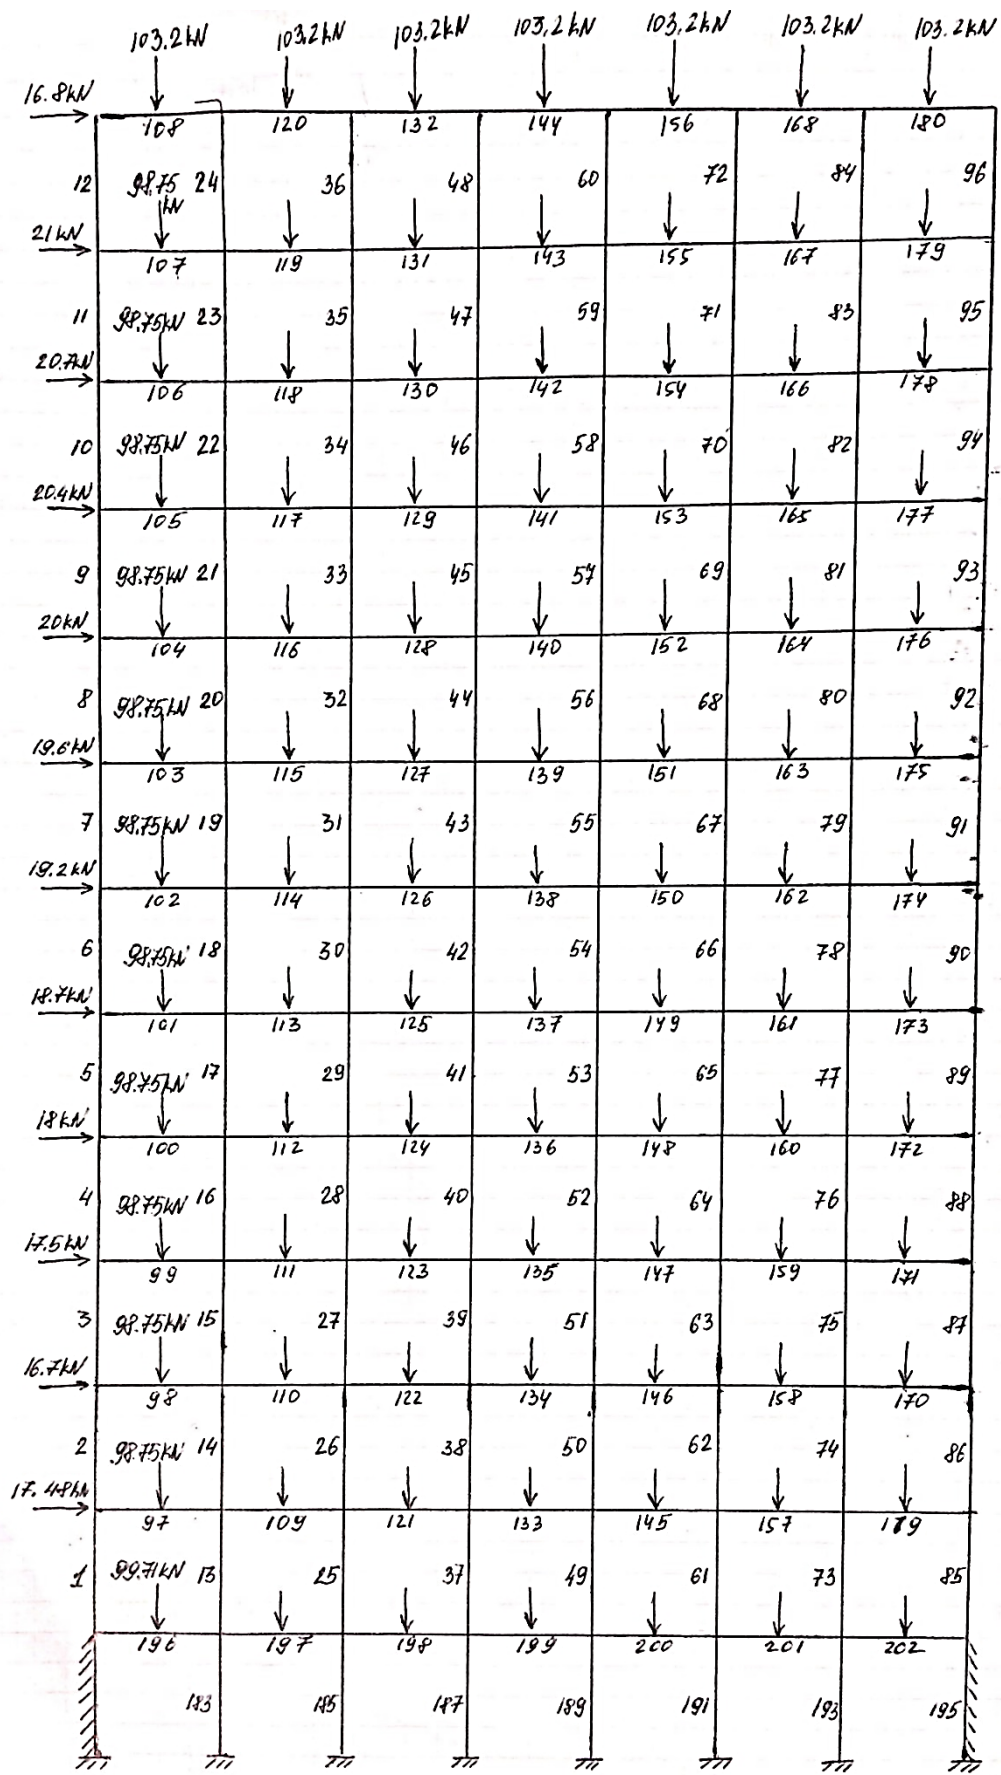 103.2kN 103.2kN 103.2kN 103.2kN 103.2kN 103.2kN 103.2kN
16.8kN
108 120 132 144 156 168 180
12 98.75 24 36 48 60 72 84 96
kN
21kN
107 119 131 143 155 167 179
11 98.75kN 23 35 47 59 71 83 95
20.7kN
106 118 130 142 154 166 178
10 98.75kN 22 34 46 58 70 82 94
20.4kN
105 117 129 141 153 165 177
9 98.75kN 21 33 45 57 69 81 93
20kN
104 116 128 140 152 164 176
8 98.75kN 20 32 44 56 68 80 92
19.6kN
103 115 127 139 151 163 175
7 98.75kN 19 31 43 55 67 79 91
19.2kN
102 114 126 138 150 162 174
6 98.75kN 18 30 42 54 66 78 90
18.7kN
101 113 125 137 149 161 173
5 98.75kN 17 29 41 53 65 77 89
18kN
100 112 124 136 148 160 172
4 98.75kN 16 28 40 52 64 76 88
17.5kN
99 111 123 135 147 159 171
3 98.75kN 15 27 39 51 63 75 87
16.7kN
98 110 122 134 146 158 170
2 98.75kN 14 26 38 50 62 74 86
17.48kN
97 109 121 133 145 157
1 99.71kN 13 25 37 49 61 73 85
196 197 198 199 200 201 202
183 185 187 189 191 193 195